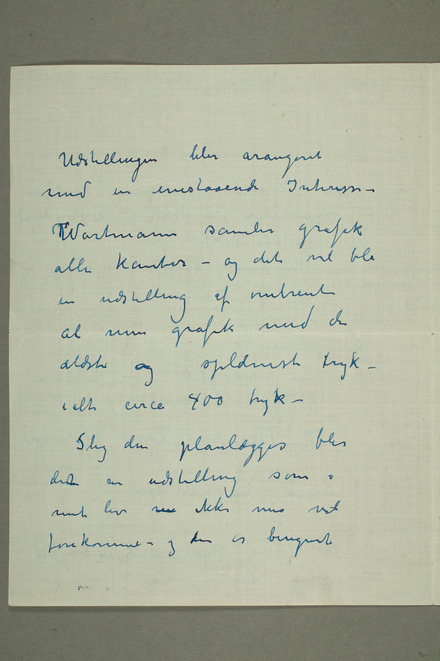 Udstillingen blir arangeret
med en enestaaende Interesse –
Wartmann samler grafik
alle kanter – og det vil bli
en udstilling af omtrent
al min grafik med de
ældste og sjeldneste tryk –
ialt circa 400 tryk –
Slig den planlægges blir
det en udstilling som i
mit liv ikke mer vil
forekomme – og den er beregnet